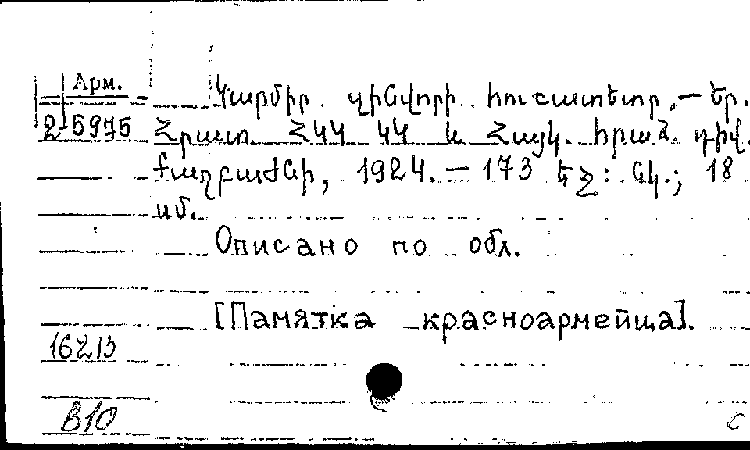 Арм.
2-5975
Կարմիր զինվորի հուշատետր. — Եր.
Հրատ. ՀԿԿ ԿԿ և Հայկ. հրաձ. դիվ.
քաղբաժնի, 1924. — 173 եջ: նկ.; 18
սմ.
Описано по обл.
[Памятка красноармейца].
16213
В10
с